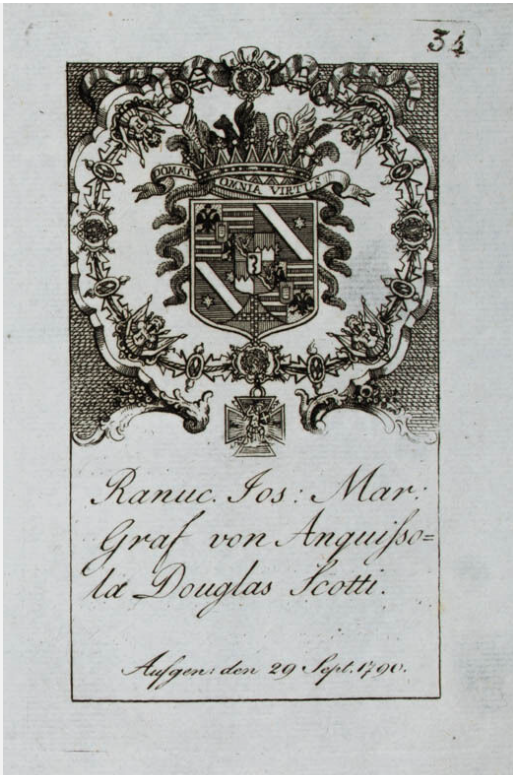 34
DOMAT OMNIA VIRTUS
Ranuc. Jos: Mar:
Graf von Anguiſso=
la Douglas Scotti.
Aufgen: den 29 Sept. 1790.